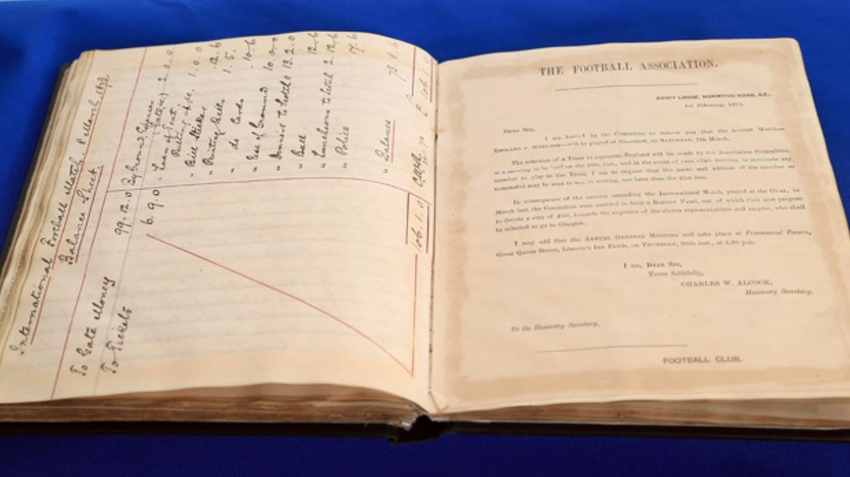 International Football Match 8 March 1873
Balance Sheet
To Gate Money 99.12.0
To Tickets 6.9.0
106.1.0
By Ground Expenses
2.2.0
1.0.0
" Bill Sticker 12.6
" Printing Bills 1.5.
" do Cards 10.6
" Use of Ground 10.0.0
" Dinner to Scotch 13.2.0
" Ball 12.6
" Luncheons to Scotch 2.12.6
" Police 17.6
" Balance 73.8.6
106.1.0
THE FOOTBALL ASSOCIATION.
NORWOOD ROAD, S.E.,
1st February, 1874.
DEAR SIR,
I am desired by the Committee to inform you that the Annual Matches
ENGLAND v. SCOTLAND will be played at GLASGOW, on SATURDAY, 7th March.
The selection of a Team to represent England will be made by the Association Committee,
at a meeting to be held on the 26th inst., and in the event of your Club desiring to nominate any
member to play in the Team, I am to request that the name and address of the member so
nominated may be sent to me, in writing, not later than the 21st inst.
In consequence of the success attending the International Match, played at the OVAL, in
March last, the Committee were enabled to form a RESERVE FUND, out of which they now propose
to devote a sum of towards the expenses of the eleven representatives and umpire, who shall
be selected to go to Glasgow.
I may add that the ANNUAL GENERAL MEETING will take place at Freemasons' Tavern,
Great Queen Street, Lincoln's Inn Fields, on THURSDAY, 26th inst., at 6.30 p.m.
I am, DEAR SIR,
Yours faithfully,
CHARLES W. ALCOCK,
Honorary Secretary.
To the Honorary Secretary,
FOOTBALL CLUB.